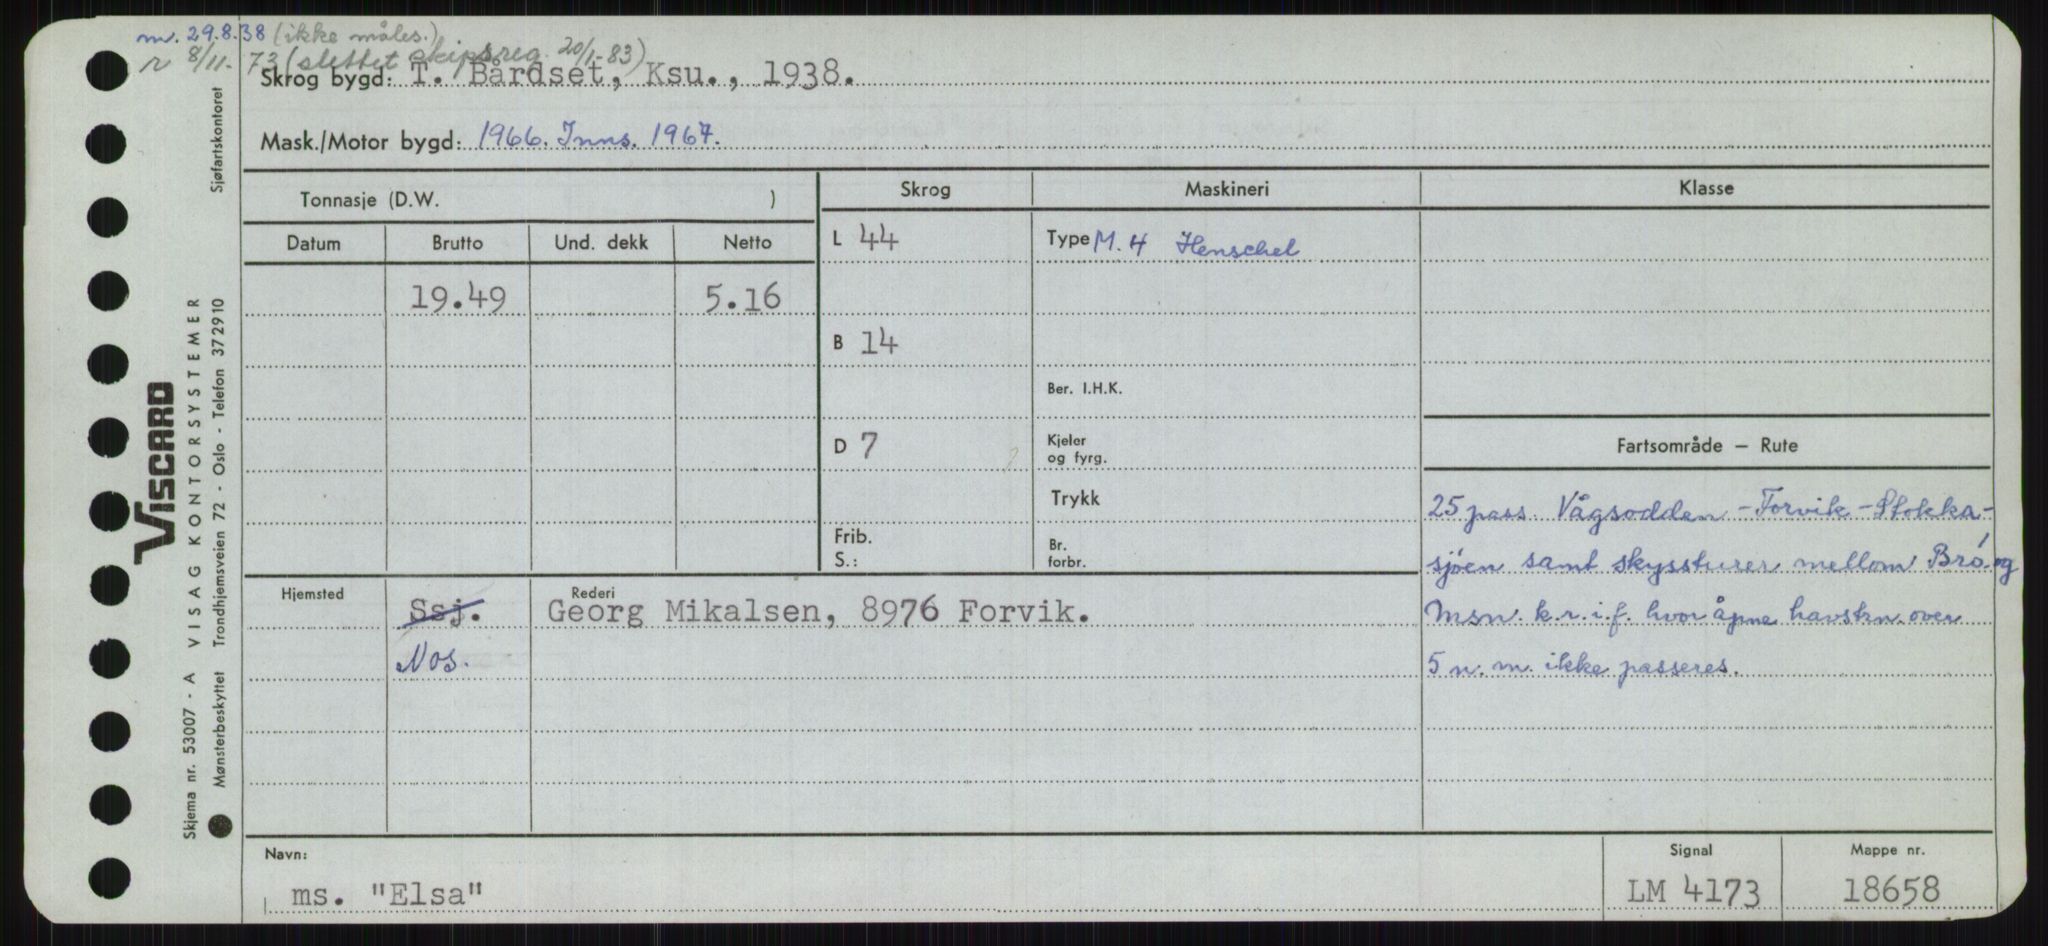 m. 29.8.38 (ikke måles.)
n 8/11-73 (slettet skipsreg. 20/1-83)
Skrog bygd: T. Bårdset, Ksu., 1938.
Mask./Motor bygd: 1966. Inns. 1967.
Tonnasje (D.W. )
Skrog
Maskineri
Klasse
Datum
Brutto
Und. dekk
Netto
L 44
Type M. 4 Henschel
19.49
5.16
B 14
Ber. I.H.K.
D 7
Kjeler
og fyrg.
Fartsområde – Rute
Trykk
25 pass. Vågsodden – Forvik – Stokka-
Frib.
S.:
Br.
forbr.
sjøen samt skyssturer mellom Brö. og
Hjemsted
Rederi
Ssj.
Georg Mikalsen, 8976 Forvik.
Msn. k.r.i.f. hvor åpne havstrn. over
Nos.
5 n. m. ikke passeres.
Navn:
ms. "Elsa"
Signal
LM 4173
Mappe nr.
18658
Skjema nr. 53007 - A VISAG KONTORSYSTEMER
VISCARD
Mønsterbeskyttet Trondhjemsveien 72 - Oslo - Telefon 372910 Sjøfartskontoret